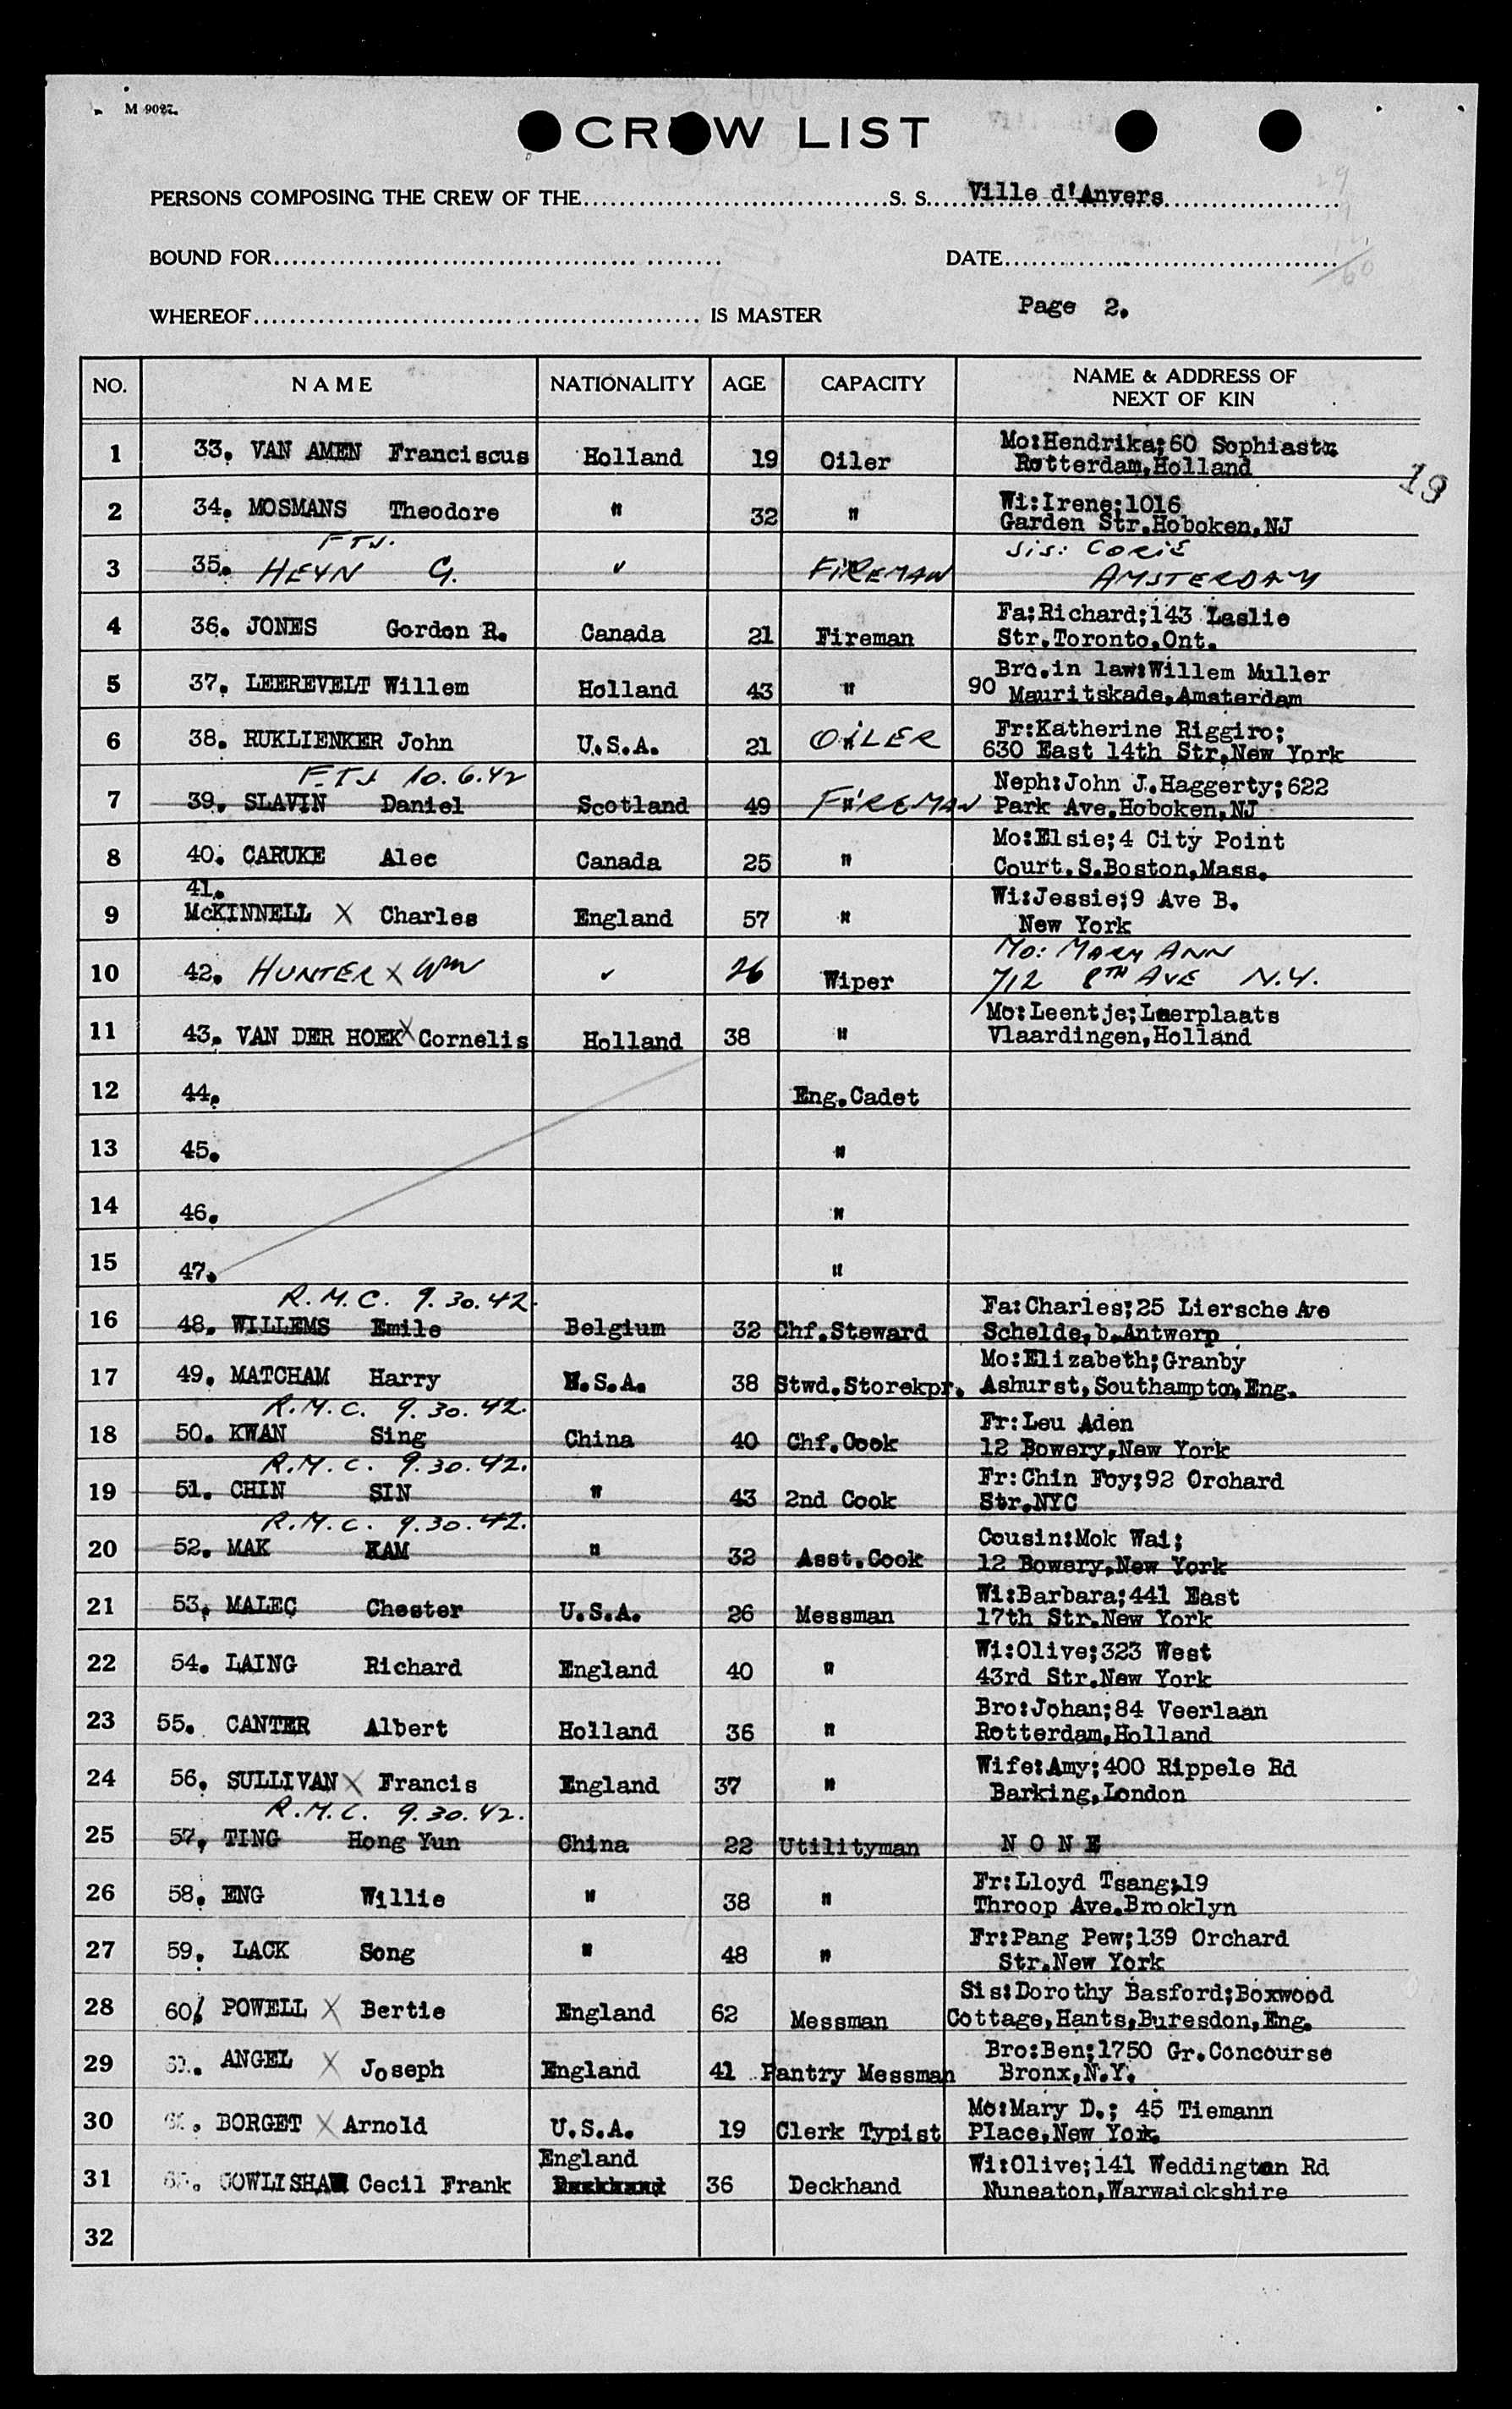 M 9027.
CREW LIST
PERSONS COMPOSING THE CREW OF THE S. S. Ville d'Anvers
BOUND FOR DATE
WHEREOF IS MASTER Page 2.
NO. NAME NATIONALITY AGE CAPACITY NAME & ADDRESS OF
NEXT OF KIN
1 33. VAN AMEN Franciscus Holland 19 Oiler Mo:Hendrika;60 Sophiastr.
Rotterdam,Holland
19
2 34. MOSMANS Theodore " 32 " Wi:Irene;1016
Garden Str.Hoboken,NJ
FTJ.
3 35. HEYN G. ✓ FIREMAN Sis: CORIE
AMSTERDAM
4 36. JONES Gordon R. Canada 21 Fireman Fa;Richard;143 Laslie
Str.Toronto,Ont.
5 37. LEEREVELT Willem Holland 43 " Bro.in law:Willem Muller
90 Mauritskade,Amsterdam
6 38. RUKLIENKER John U.S.A. 21 OILER Fr:Katherine Riggiro;
630 East 14th Str,New York
FTJ 10.6.42
7 39. SLAVIN Daniel Scotland 49 FIREMAN Neph:John J.Haggerty;622
Park Ave.Hoboken,NJ
8 40. CARUKE Alec Canada 25 " Mo:Elsie;4 City Point
Court.S.Boston,Mass.
41.
9 McKINNELL X Charles England 57 " Wi:Jessie;9 Ave B.
New York
10 42. HUNTER X Wm ✓ 26 Wiper Mo: MARY ANN
712 8TH AVE N.Y.
11 43. VAN DER HOEK X Cornelis Holland 38 " Mo:Leentje;Leerplaats
Vlaardingen,Holland
12 44. Eng.Cadet
13 45. "
14 46. "
15 47. "
R.M.C. 9.30.42.
16 48. WILLEMS Emile Belgium 32 Chf.Steward Fa:Charles;25 Liersche Ave
Schelde,b.Antwerp
17 49. MATCHAM Harry U.S.A. 38 Stwd.Storekpr. Mo:Elizabeth;Granby
Ashurst,Southampton,Eng.
R.M.C. 9.30.42.
18 50. KWAN Sing China 40 Chf.Cook Fr:Leu Aden
12 Bowery,New York
R.M.C. 9.30.42.
19 51. CHIN SIN " 43 2nd Cook Fr:Chin Foy;92 Orchard
Str.NYC
R.M.C. 9.30.42.
20 52. MAK KAM " 32 Asst.Cook Cousin:Mok Wai;
12 Bowery,New York
21 53. MALEC Chester U.S.A. 26 Messman Wi:Barbara;441 East
17th Str.New York
22 54. LAING Richard England 40 " Wi:Olive;323 West
43rd Str.New York
23 55. CANTER Albert Holland 36 " Bro:Johan;84 Veerlaan
Rotterdam,Holland
24 56. SULLIVAN X Francis England 37 " Wife:Amy;400 Rippele Rd
Barking,London
R.M.C. 9.30.42.
25 57. TING Hong Yun China 22 Utilityman NONE
26 58. ENG Willie " 38 " Fr:Lloyd Tsang;19
Throop Ave.Brooklyn
27 59. LACK Song " 48 " Fr:Pang Pew;139 Orchard
Str.New York
28 60. POWELL X Bertie England 62 Messman Sis:Dorothy Basford;Boxwood
Cottage,Hants,Buresdon,Eng.
29 ANGEL X Joseph England 41 Pantry Messman Bro:Ben;1750 Gr.Concourse
Bronx,N.Y.
30 BORGET X Arnold U.S.A. 19 Clerk Typist Mo:Mary D.; 45 Tiemann
Place,New York
England
31 COWLISHAW Cecil Frank Deckhand 36 Deckhand Wi:Olive;141 Weddington Rd
Nuneaton,Warwaickshire
32